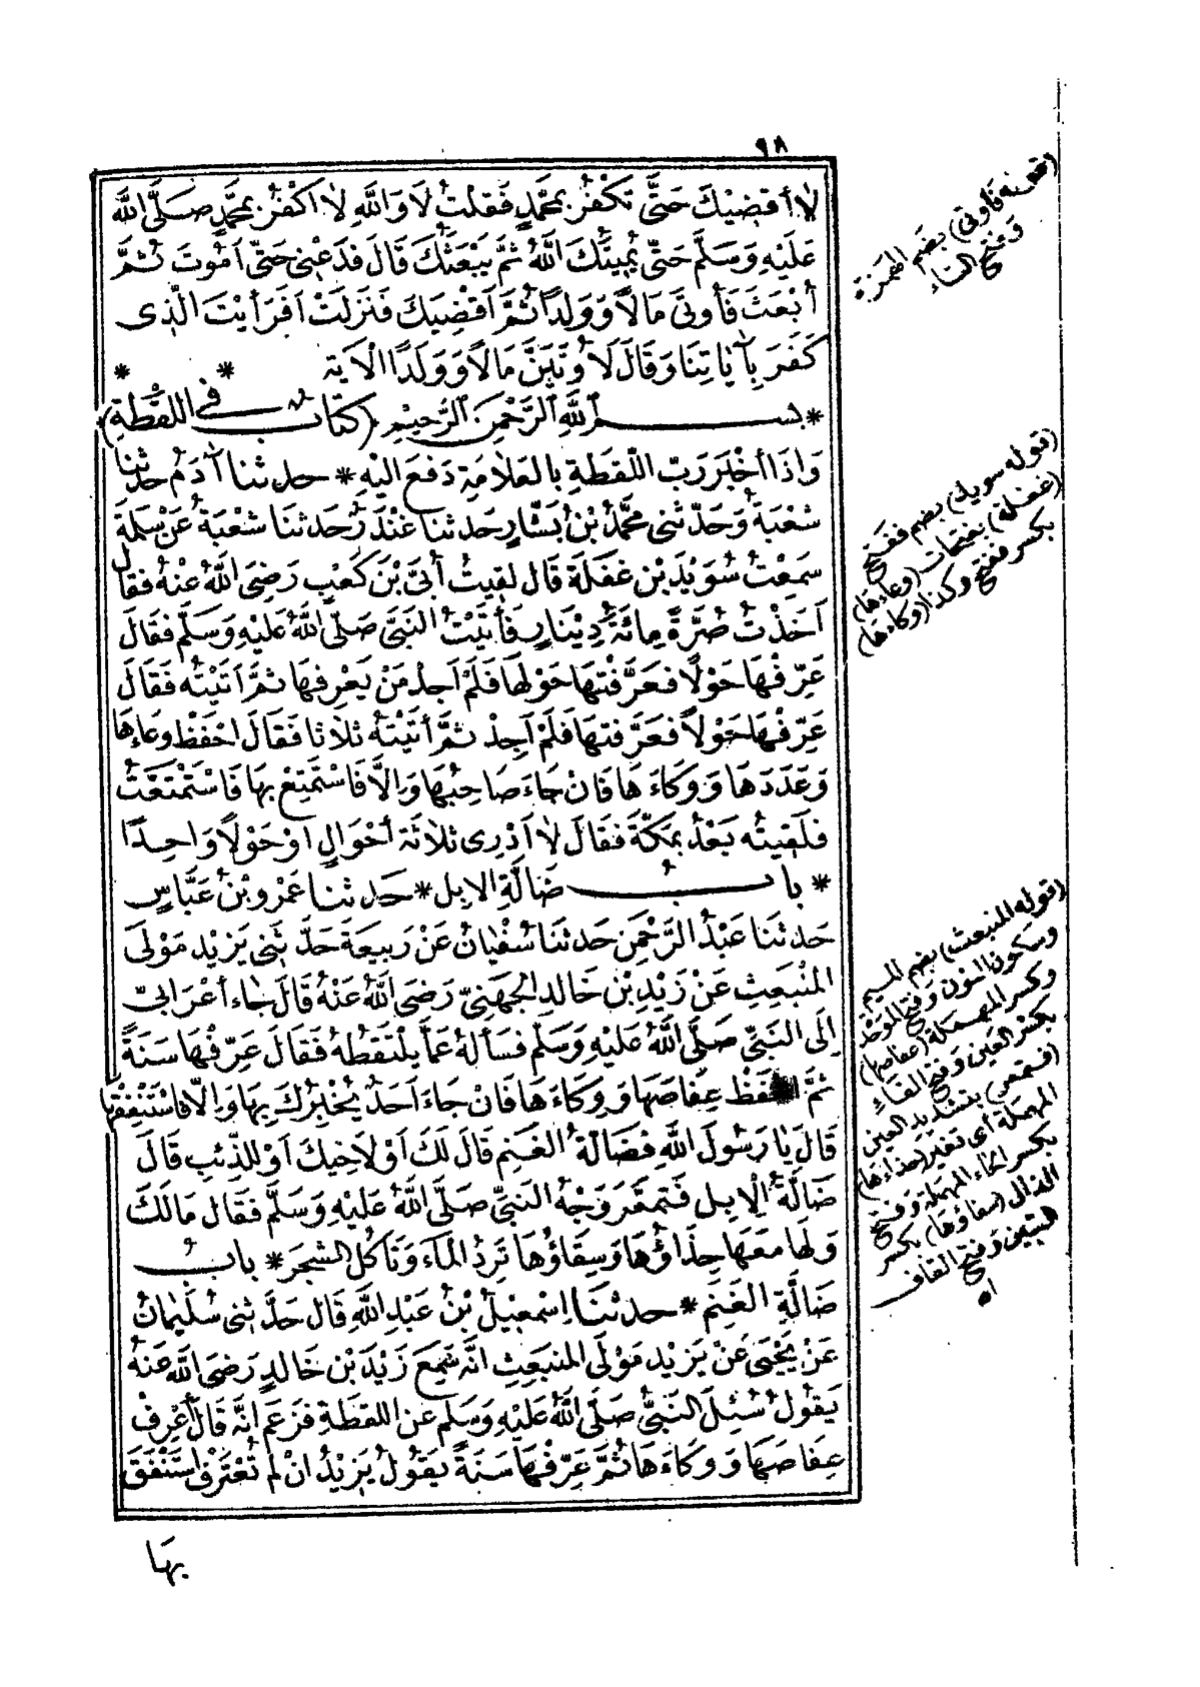 ٩٨
لَا أَقْضِيْكَ حَتَّى تَكْفُرَ بِمُحَمَّدٍ فَقُلْتُ لَا وَاللَّهِ لَا أَكْفُرُ بِمُحَمَّدٍ صَلَّى اللَّهُ
عَلَيْهِ وَسَلَّمَ حَتَّى يُمِيتَكَ اللَّهُ ثُمَّ يَبْعَثَكَ قَالَ فَدَعْنِي حَتَّى أَمُوتَ ثُمَّ
أُبْعَثَ فَأُوتَى مَالًا وَوَلَدًا ثُمَّ أَقْضِيَكَ فَنَزَلَتْ أَفَرَأَيْتَ الَّذِى
كَفَرَ بِآيَاتِنَا وَقَالَ لَأُوتَيَنَّ مَالًا وَوَلَدًا الْآيَة * *
* بسم اللَّهِ الرَّحْمَنِ الرَّحِيْمِ (كتاب في اللُّقَطَةِ)
وَإِذَا أَخْبَرَ رَبُّ اللُّقَطَةِ بِالعَلَامَةِ دَفَعَ إِلَيْهِ * حدثنا آدَمُ حدثنا
شُعْبَةُ وَحَدَّثَنِى مُحَمَّدُ بْنُ بَشَّارٍ حَدثنا غُنْدَرٌ حَدثنَا شُعْبَةُ عَنْ سَلَمَةَ
سَمِعْتُ سُوَيْدَ بْنَ غَفَلَةَ قَالَ لَقِيتُ أُبَيَّ بْنَ كَعْبٍ رَضِيَ اللَّهُ عَنْهُ فَقَالَ
أَخَذْتُ صُرَّةً مِائَةَ دِيْنَارٍ فَأَتَيْتُ النَّبِيَّ صَلَّى اللَّهُ عَلَيْهِ وَسَلَّمَ فَقَالَ
عَرِّفْهَا حَوْلًا فَعَرَّفْتُهَا حَوْلَهَا فَلَمْ أَجِدْ مَنْ يَعْرِفُهَا ثُمَّ أَتَيْتُهُ فَقَالَ
عَرِّفْهَا حَوْلًا فَعَرَّفْتُهَا فَلَمْ أَجِدْ ثُمَّ أَتَيْتُهُ ثَلَاثًا فَقَالَ احْفَظْ وِعَاءَهَا
وَعَدَدَهَا وَوِكَاءَهَا فَإِنْ جَاءَ صَاحِبُهَا وَإِلَّا فَاسْتَمْتِعْ بِهَا فَاسْتَمْتَعْتُ
فَلَقِيتُهُ بَعْدُ بِمَكَّةَ فَقَالَ لَا أَدْرِى ثَلَاثَةَ أَحْوَالٍ أَوْ حَوْلًا وَاحِدًا
* بابُ ضَالَّةِ الإِبِلِ * حَدثنا عَمْرُو بْنُ عَبَّاسٍ
حَدثنَا عَبْدُ الرَّحْمَنِ حَدثنَا سُفْيَانُ عَنْ رَبِيعَةَ حَدَّثَنِى يَزِيدُ مَوْلَى
المُنْبَعِثِ عَنْ زَيْدِ بْنِ خَالِدٍ الجُهَنِيِّ رَضِيَ اللَّهُ عَنْهُ قَالَ جَاءَ أَعْرَابِيٌّ
إِلَى النَّبِيِّ صَلَّى اللَّهُ عَلَيْهِ وَسَلَّمَ فَسَأَلَهُ عَمَّا يَلْتَقِطُهُ فَقَالَ عَرِّفْهَا سَنَةً
ثُمَّ احْفَظْ عِفَاصَهَا وَوِكَاءَهَا فَإِنْ جَاءَ أَحَدٌ يُخْبِرُكَ بِهَا وَإِلَّا فَاسْتَنْفِقْهَا
قَالَ يَا رَسُولَ اللَّهِ فَضَالَّةُ الغَنَمِ قَالَ لَكَ أَوْ لِأَخِيكَ أَوْ لِلذِّئْبِ قَالَ
ضَالَّةُ الإِبِلِ فَتَمَعَّرَ وَجْهُ النَّبِيِّ صَلَّى اللَّهُ عَلَيْهِ وَسَلَّمَ فَقَالَ مَا لَكَ
وَلَهَا مَعَهَا حِذَاؤُهَا وَسِقَاؤُهَا تَرِدُ المَاءَ وَتَأْكُلُ الشَّجَرَ * بابُ
ضَالَّةِ الغَنَمِ * حدثنا إِسْمَعِيلُ بْنُ عَبْدِ اللَّهِ قَالَ حَدَّثَنِى سُلَيْمَانُ
عَنْ يَحْيَى عَنْ يَزِيدَ مَوْلَى المُنْبَعِثِ أَنَّهُ سَمِعَ زَيْدَ بْنَ خَالِدٍ رَضِيَ اللَّهُ عَنْهُ
يَقُولُ سُئِلَ النَّبِيُّ صَلَّى اللَّهُ عَلَيْهِ وَسَلَّمَ عَنِ اللُّقَطَةِ فَزَعَمَ أَنَّهُ قَالَ اعْرِفْ
عِفَاصَهَا وَوِكَاءَهَا ثُمَّ عَرِّفْهَا سَنَةً يَقُولُ يَزِيدُ إِنْ لَمْ تُعْتَرَفْ اسْتَنْفَقَ
بِهَا
فأوتى) بضم الهمزة
وفتح التاء
(قوله سويد) بضم ففتح
(غفلة) بفتحات (وعاءها)
بكسر ففتح وكذا (وكاءها)
(قوله المنبعث) بضم الميم
وسكون النون وفتح الموحدة
وكسر المهملة (عفاصها)
بكسر العين وفتح الفاء
(فتمعر) بتشديد العين
المهملة أى تغير (حذاءها)
بكسر الحاء المهملة وفتح
الذال (سقاؤها) بكسر
السين وفتح القاف
اه